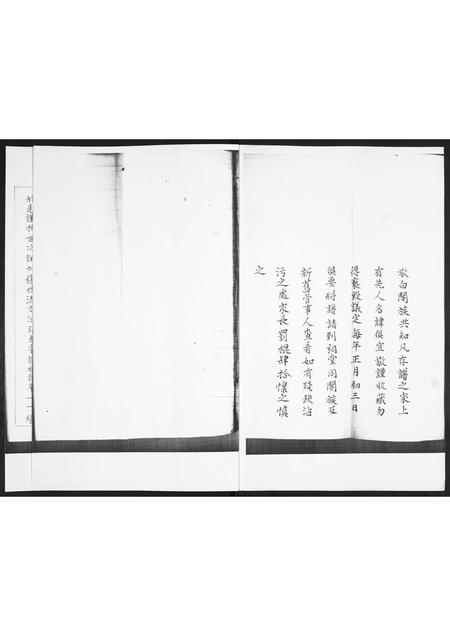 敬白閤族共知凡存譜之家上
有先人名諱俱宜敬謹收藏勿
得褻毀議定每年正月初三日
俱要將譜請到祠堂同閤族及
新舊管事人查看如有殘缺沾
污之處家長罰棍肆拾懍之慎
之